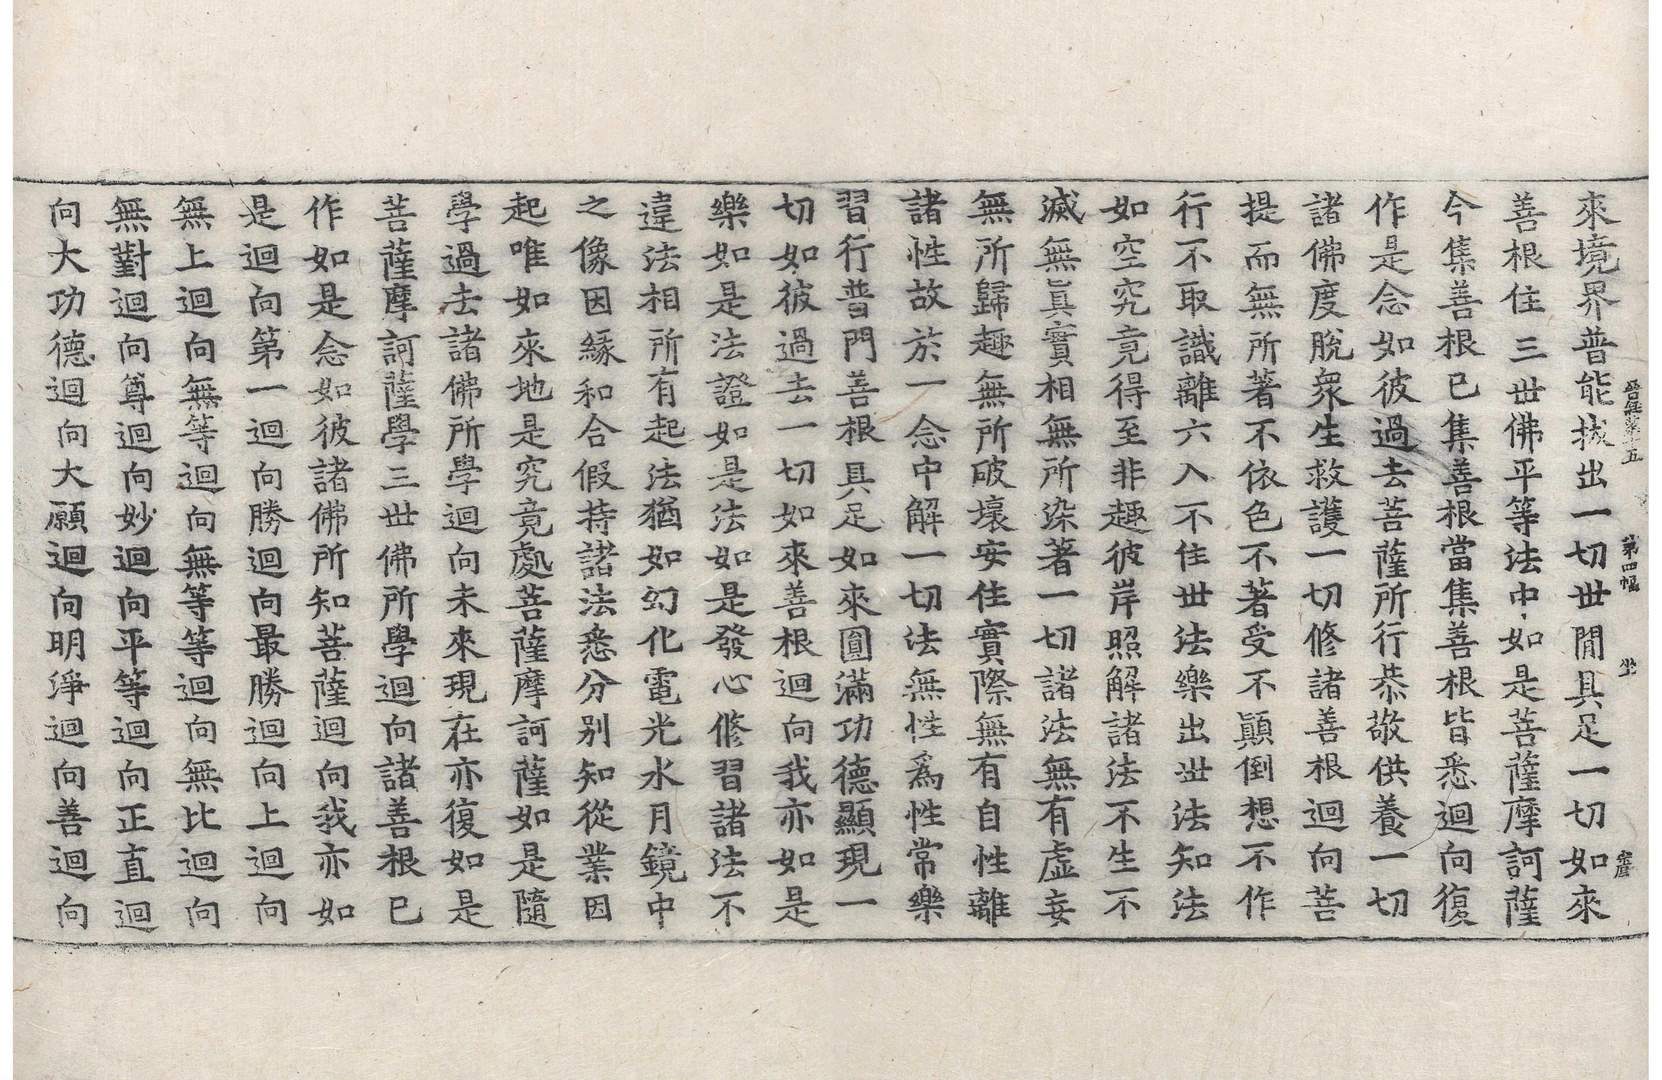 來境界普能拔出一切世間具足一切如來
善根住三世佛平等法中如是菩薩摩訶薩
今集善根已集善根當集善根皆悉迴向復
作是念如彼過去菩薩所行恭敬供養一切
諸佛度脫衆生救護一切修諸善根迴向菩
提而無所著不依色不著受不顚倒想不作
行不取識離六入不住世法樂出世法知法
如空究竟得至非趣彼岸照解諸法不生不
滅無眞實相無所染著一切諸法無有虛妄
無所歸趣無所破壞安住實際無有自性離
諸性故於一念中解一切法無性爲性常樂
習行普門善根具足如來圓滿功德顯現一
切如彼過去一切如來善根迴向我亦如是
樂如是法證如是法如是發心修習諸法不
違法相所有起法猶如幻化電光水月鏡中
之像因緣和合假持諸法悉分別知從業因
起唯如來地是究竟處菩薩摩訶薩如是隨
學過去諸佛所學迴向未來現在亦復如是
菩薩摩訶薩學三世佛所學迴向諸善根已
作如是念如彼諸佛所知菩薩迴向我亦如
是迴向第一迴向勝迴向最勝迴向上迴向
無上迴向無等迴向無等等迴向無比迴向
無對迴向尊迴向妙迴向平等迴向正直迴
向大功德迴向大願迴向明淨迴向善迴向
晉經第十五 第四幅 坐